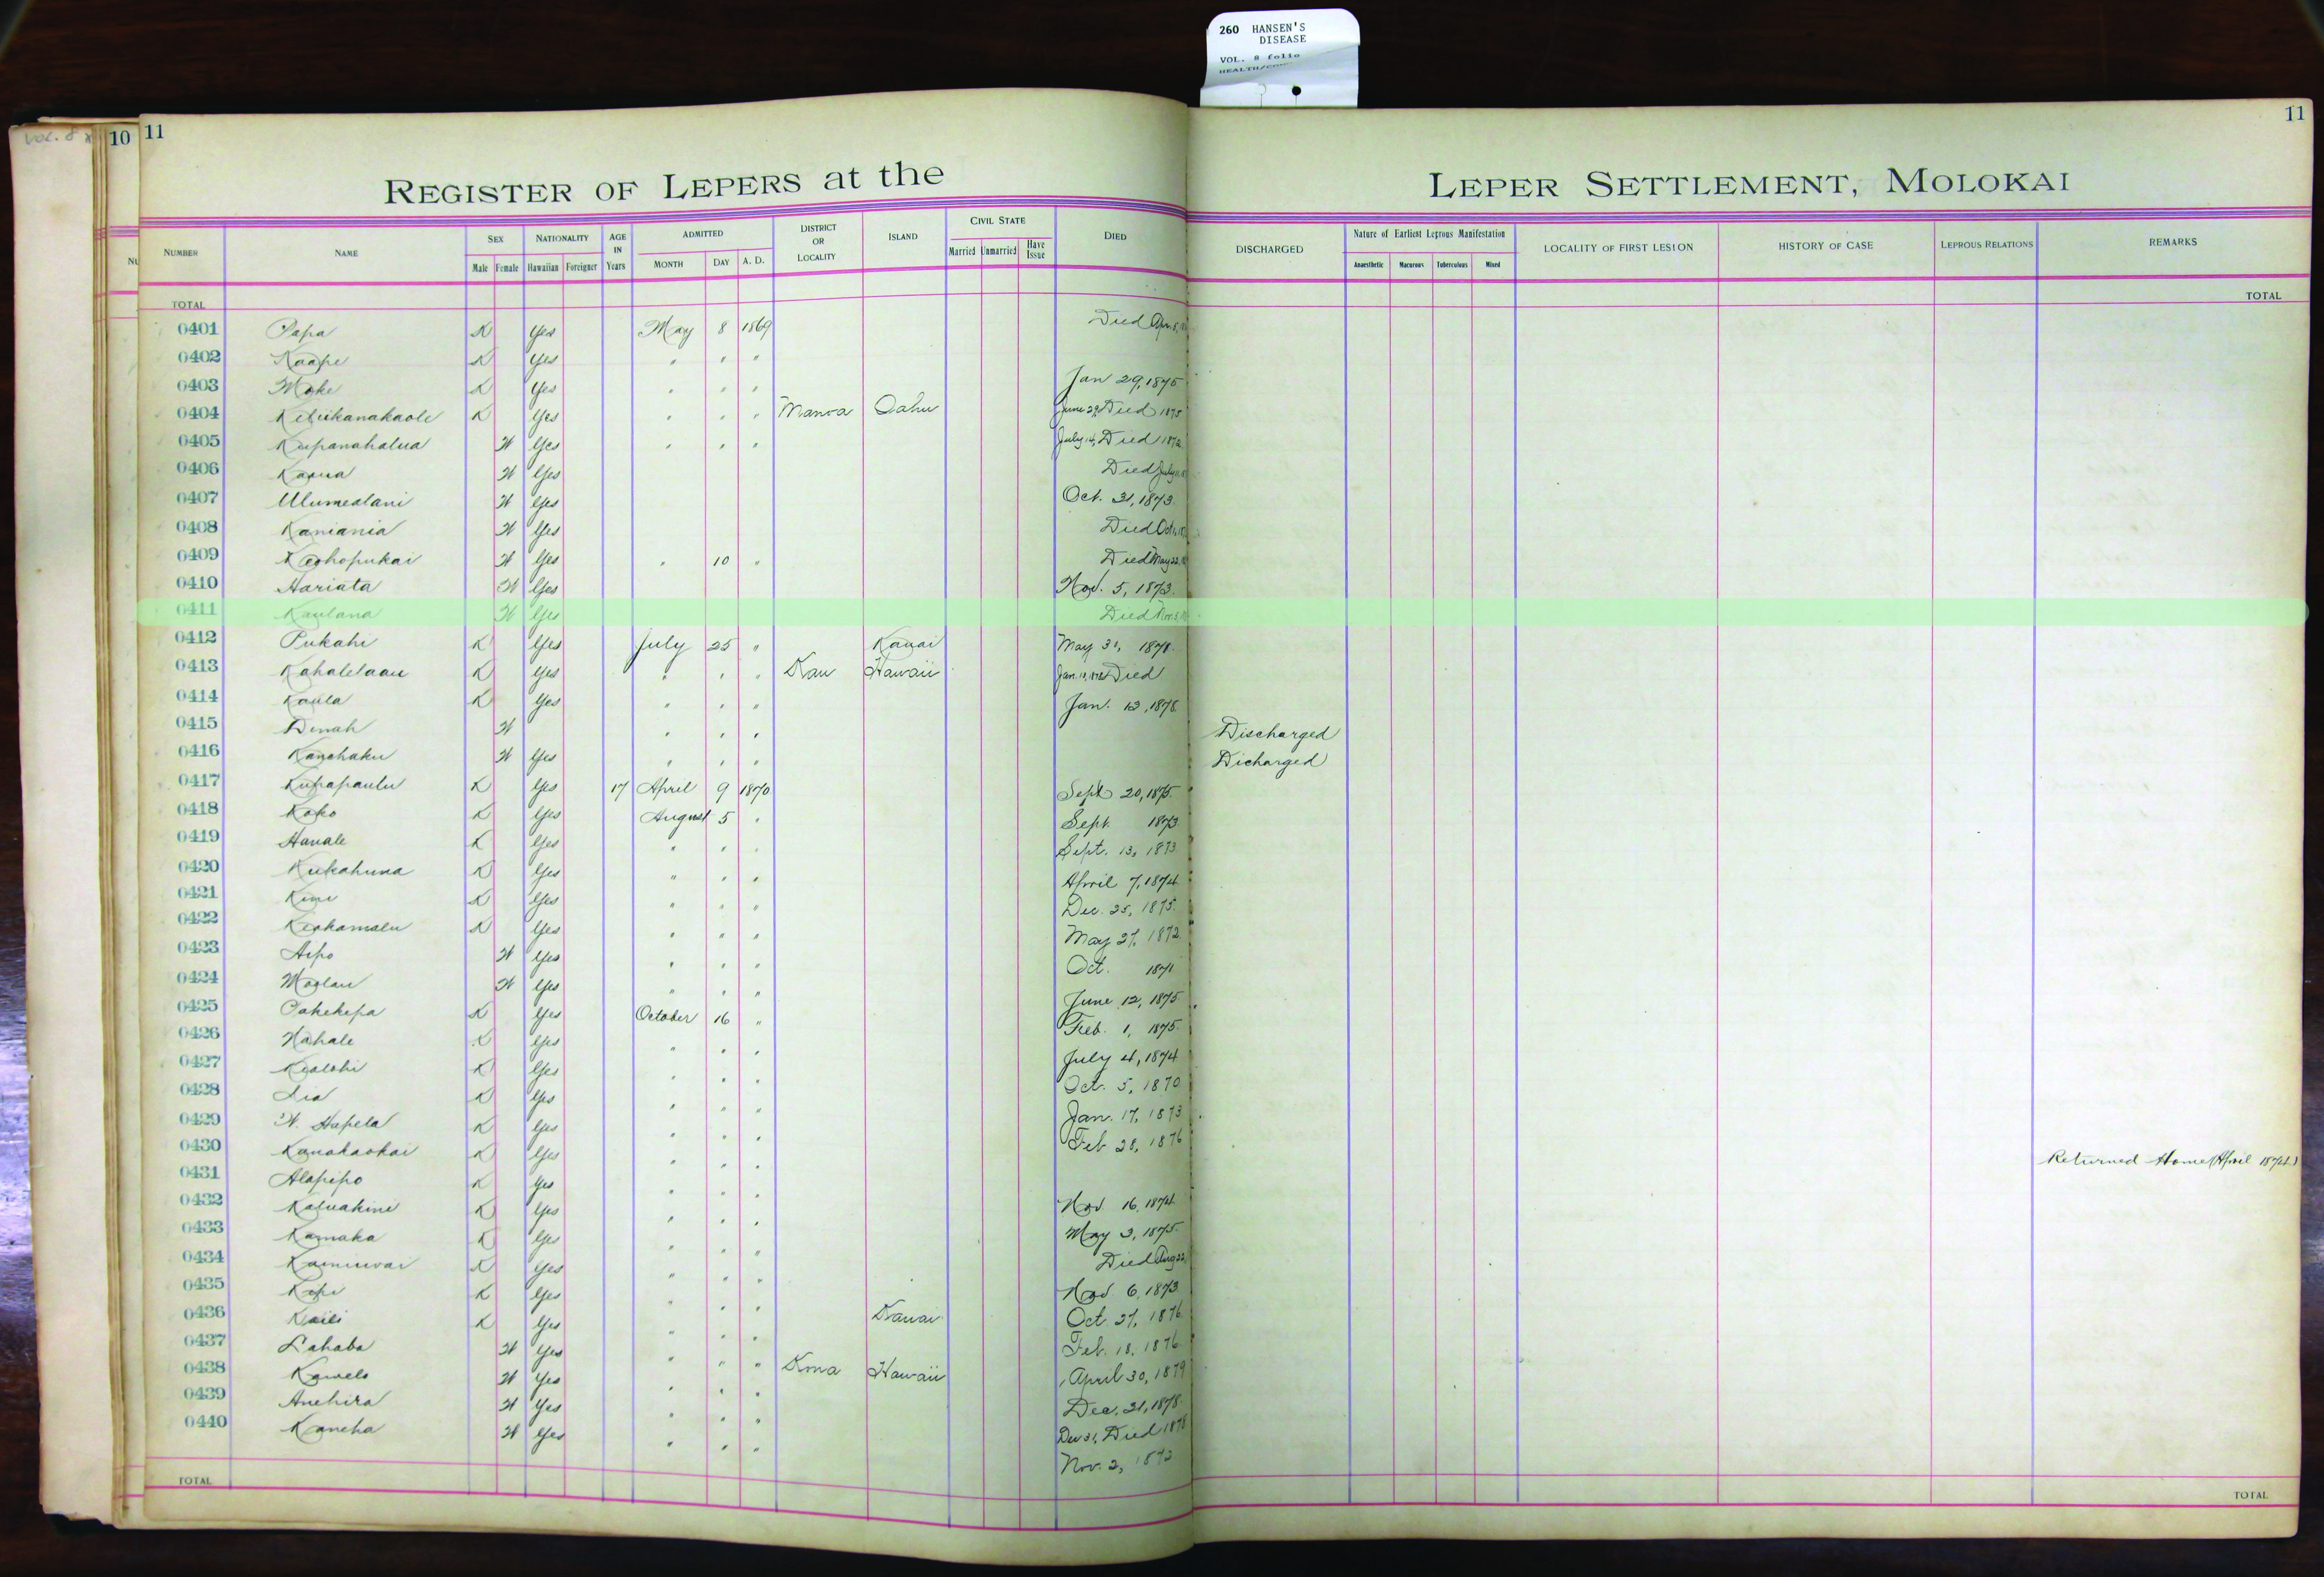 260 HANSEN'S
DISEASE
VOL. 8 folio
VOL. 8
10 11
11
REGISTER OF LEPERS at the LEPER SETTLEMENT, MOLOKAI
NUMBER NAME SEX NATIONALITY AGE IN Years ADMITTED DISTRICT OR LOCALITY ISLAND CIVIL STATE DIED DISCHARGED Nature of Earliest Leprous Manifestation LOCALITY OF FIRST LESION HISTORY OF CASE LEPROUS RELATIONS REMARKS
Male Female Hawaiian Foreigner MONTH DAY A. D. Married Unmarried Have Issue Anaesthetic Macurous Tuberculous Mixed
TOTAL TOTAL
0401 Papa K Yes May 8 1869 Died Apr. 8,
0402 Kaape K Yes " " "
0403 Moke K Yes " " " Jan 29, 1875
0404 Keliikanakaole K Yes " " " Manoa Oahu June 29, Died 1875
0405 Kupanahalua W Yes " " " July 14, Died 1872
0406 Kaoua W Yes Died July
0407 Ulumealani W Yes Oct. 31, 1873.
0408 Kamania W Yes Died Oct
0409 Keohopukai W Yes " 10 " Died May 22,
0410 Hariata W Yes Nov. 5, 1873.
0411 Kaulana W Yes Died
0412 Pukahi K Yes July 25 " Kauai May 31, 1878.
0413 Kahalelaau K Yes " " " Kau Hawaii Died
0414 Kaula K Yes " " " Jan. 12, 1878.
0415 Dinah W " " " Discharged
0416 Kanohaku W Yes " " " Dicharged
0417 Kupapaulu K Yes 17 April 9 1870 Sept 20, 1875.
0418 Koko K Yes August 5 " Sept. 1873
0419 Hanale K Yes " " " Sept. 13, 1873
0420 Kukahuna K Yes " " " April 7, 1874
0421 Kimi K Yes " " " Dec. 25, 1875.
0422 Keohamalu K Yes " " " May 27, 1872
0423 Aipo W Yes " " " Oct. 1871
0424 Moolau W Yes " " " June 12, 1875
0425 Pahekepa K Yes October 16 " Feb. 1, 1875.
0426 Nahale K Yes " " " July 4, 1874
0427 Kealohi K Yes " " " Oct. 5, 1870
0428 Lia K Yes " " " Jan. 17, 1873
0429 W. Hapela K Yes " " " Feb 28, 1876
0430 Kanakaokai K Yes " " " Returned Home (April 1874.)
0431 Alapipo K Yes " " " Nov 16, 1874
0432 Kaluakini K Yes " " " May 3, 1875.
0433 Kamaka K Yes " " " Died Aug 22,
0434 Kainiwai K Yes " " " Nov 6, 1873
0435 Kopi K Yes " " " Kauai Oct 27, 1876
0436 Kaili K Yes " " " Feb. 18, 1876
0437 Lahaba W Yes " " " Kona Hawaii April 30, 1879
0438 Kawelo W Yes " " " Dec. 31, 1878.
0439 Anehira W Yes " " " Dec 31, Died 1878
0440 Kaneha W Yes " " " Nov. 2, 1872
TOTAL TOTAL